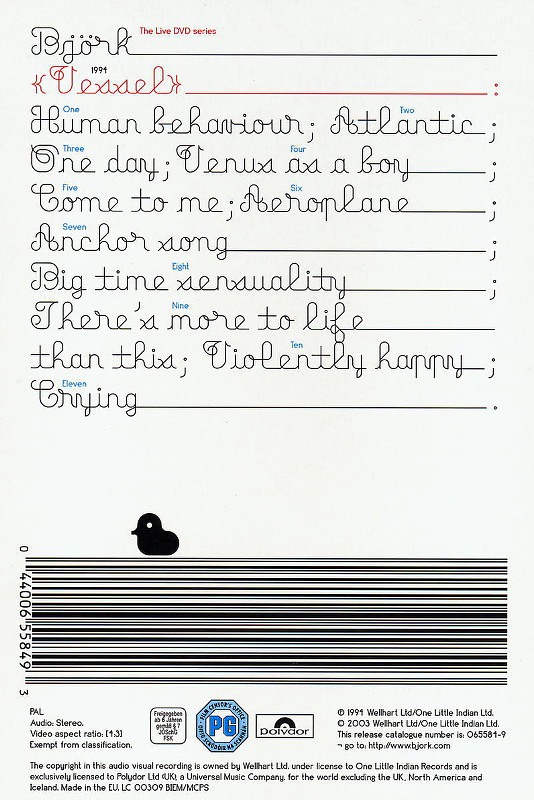 Björk The Live DVD series
{Vessel} 1994 :
One Two
Human behaviour; Atlantic ;
Three Four
One day; Venus as a boy ;
Five Six
Come to me; Aeroplane ;
Seven
Anchor song ;
Eight
Big time sensuality ;
Nine
There's more to life
Ten
than this; Violently happy ;
Eleven
Crying .
0 44006 55849 3
PAL
Audio: Stereo.
Video aspect ratio: [4:3]
Exempt from classification.
Freigegeben
ab 6 Jahren
gemäß § 7
JÖSchG
FSK
FILM CENSOR'S OFFICE
PG
polydor
℗ 1994 Wellhart Ltd/One Little Indian Ltd.
© 2003 Wellhart Ltd/One Little Indian Ltd.
This release catalogue number is: 065584-9
¬ go to: http://www.bjork.com
The copyright in this audio visual recording is owned by Wellhart Ltd. under license to One Little Indian Records and is
exclusively licensed to Polydor Ltd (UK), a Universal Music Company, for the world excluding the UK, North America and
Iceland. Made in the EU. LC 00309 BIEM/MCPS